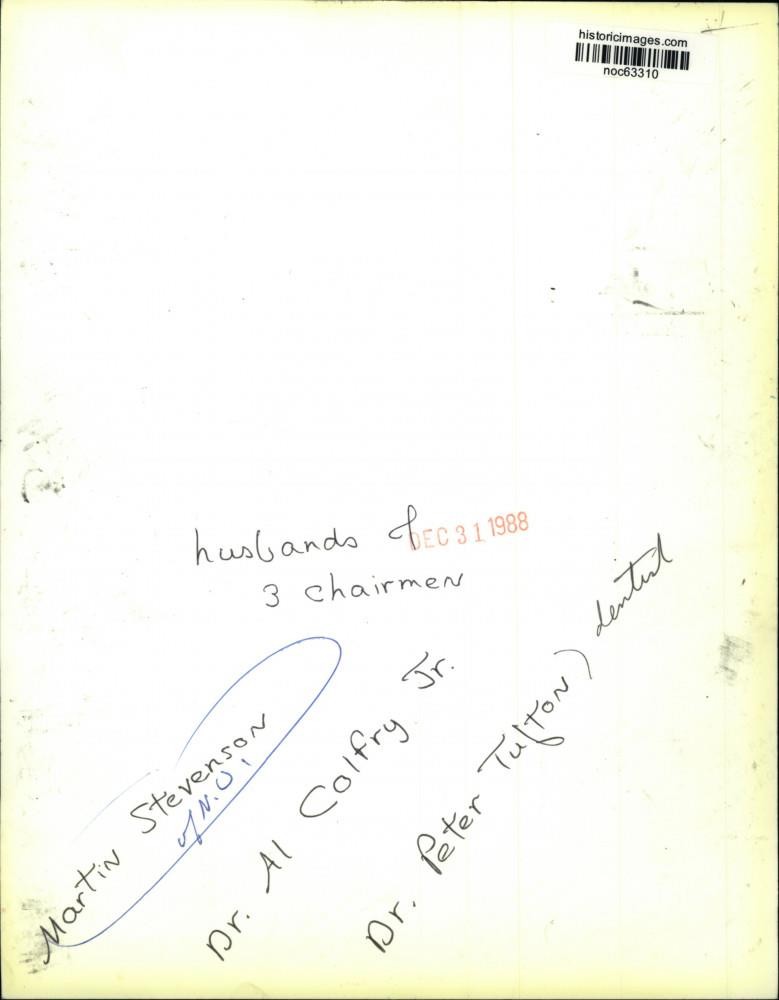 historicimages.com
noc63310
husbands of
DEC 31 1988
3 chairmen
Martin Stevenson
of N.O.
Dr. Al Colfry Jr.
Dr. Peter Tufton) dentist